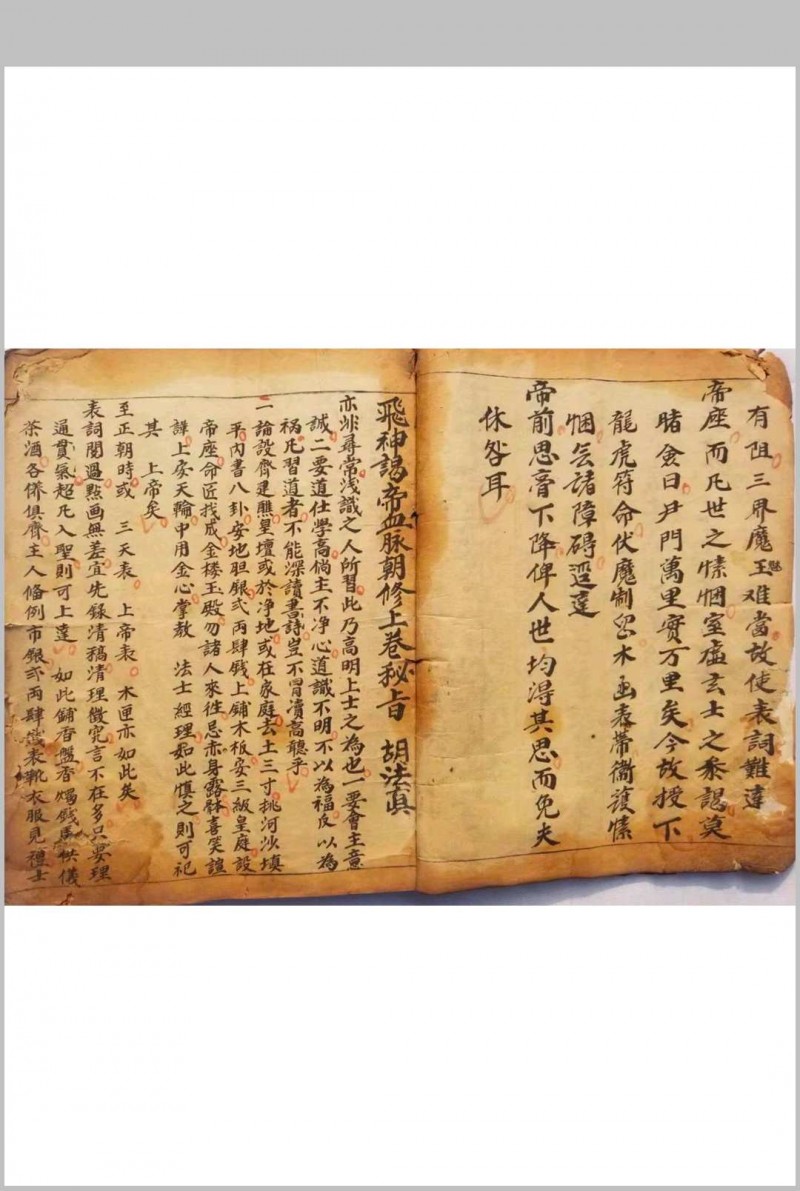 有阻三界魔王難當故使表詞難達
帝座而凡世之愫悃室虛玄士之忝謁莫
睹僉曰尹門萬里實万里矣今故授下
龍虎符命伏魔制召木函表帶衛護愫
悃矣諸障碍逕達
帝前思膏下降俾人世均淂其思而免夫
休咎耳
飛神謁帝血脉朝修上卷秘旨 胡法真
亦非尋常浅識之人所習此乃高明上士之為也一要會主意
誠二要道仕學高倘主不净心道識不明不以為福反以為
祸凡習道者不能深讀書詩岂不冒瀆高聽乎
一論設齊建醮皇壇或於净地或在家庭去土三寸挑河沙填
平内書八卦安地胆銀弍両肆錢上鋪木板安三級皇庭設
帝座命匠找成金楼玉殿勿諸人來徃忌赤身露体喜笑諠
譁上安天輪中用金心掌教 法士經理如此慎之則可祀
其 上帝矣
至正朝時或 三天表 上帝表 木匣亦如此矣
表詞閱過點画無差宜先錄清稿清理微究言不在多只要理
通貫氣超凡入聖則可上達 如此鋪香盤香燭錢馬供儀
茶酒各條俱齊主人俻例市銀弍両肆錢表靴衣服見禮士